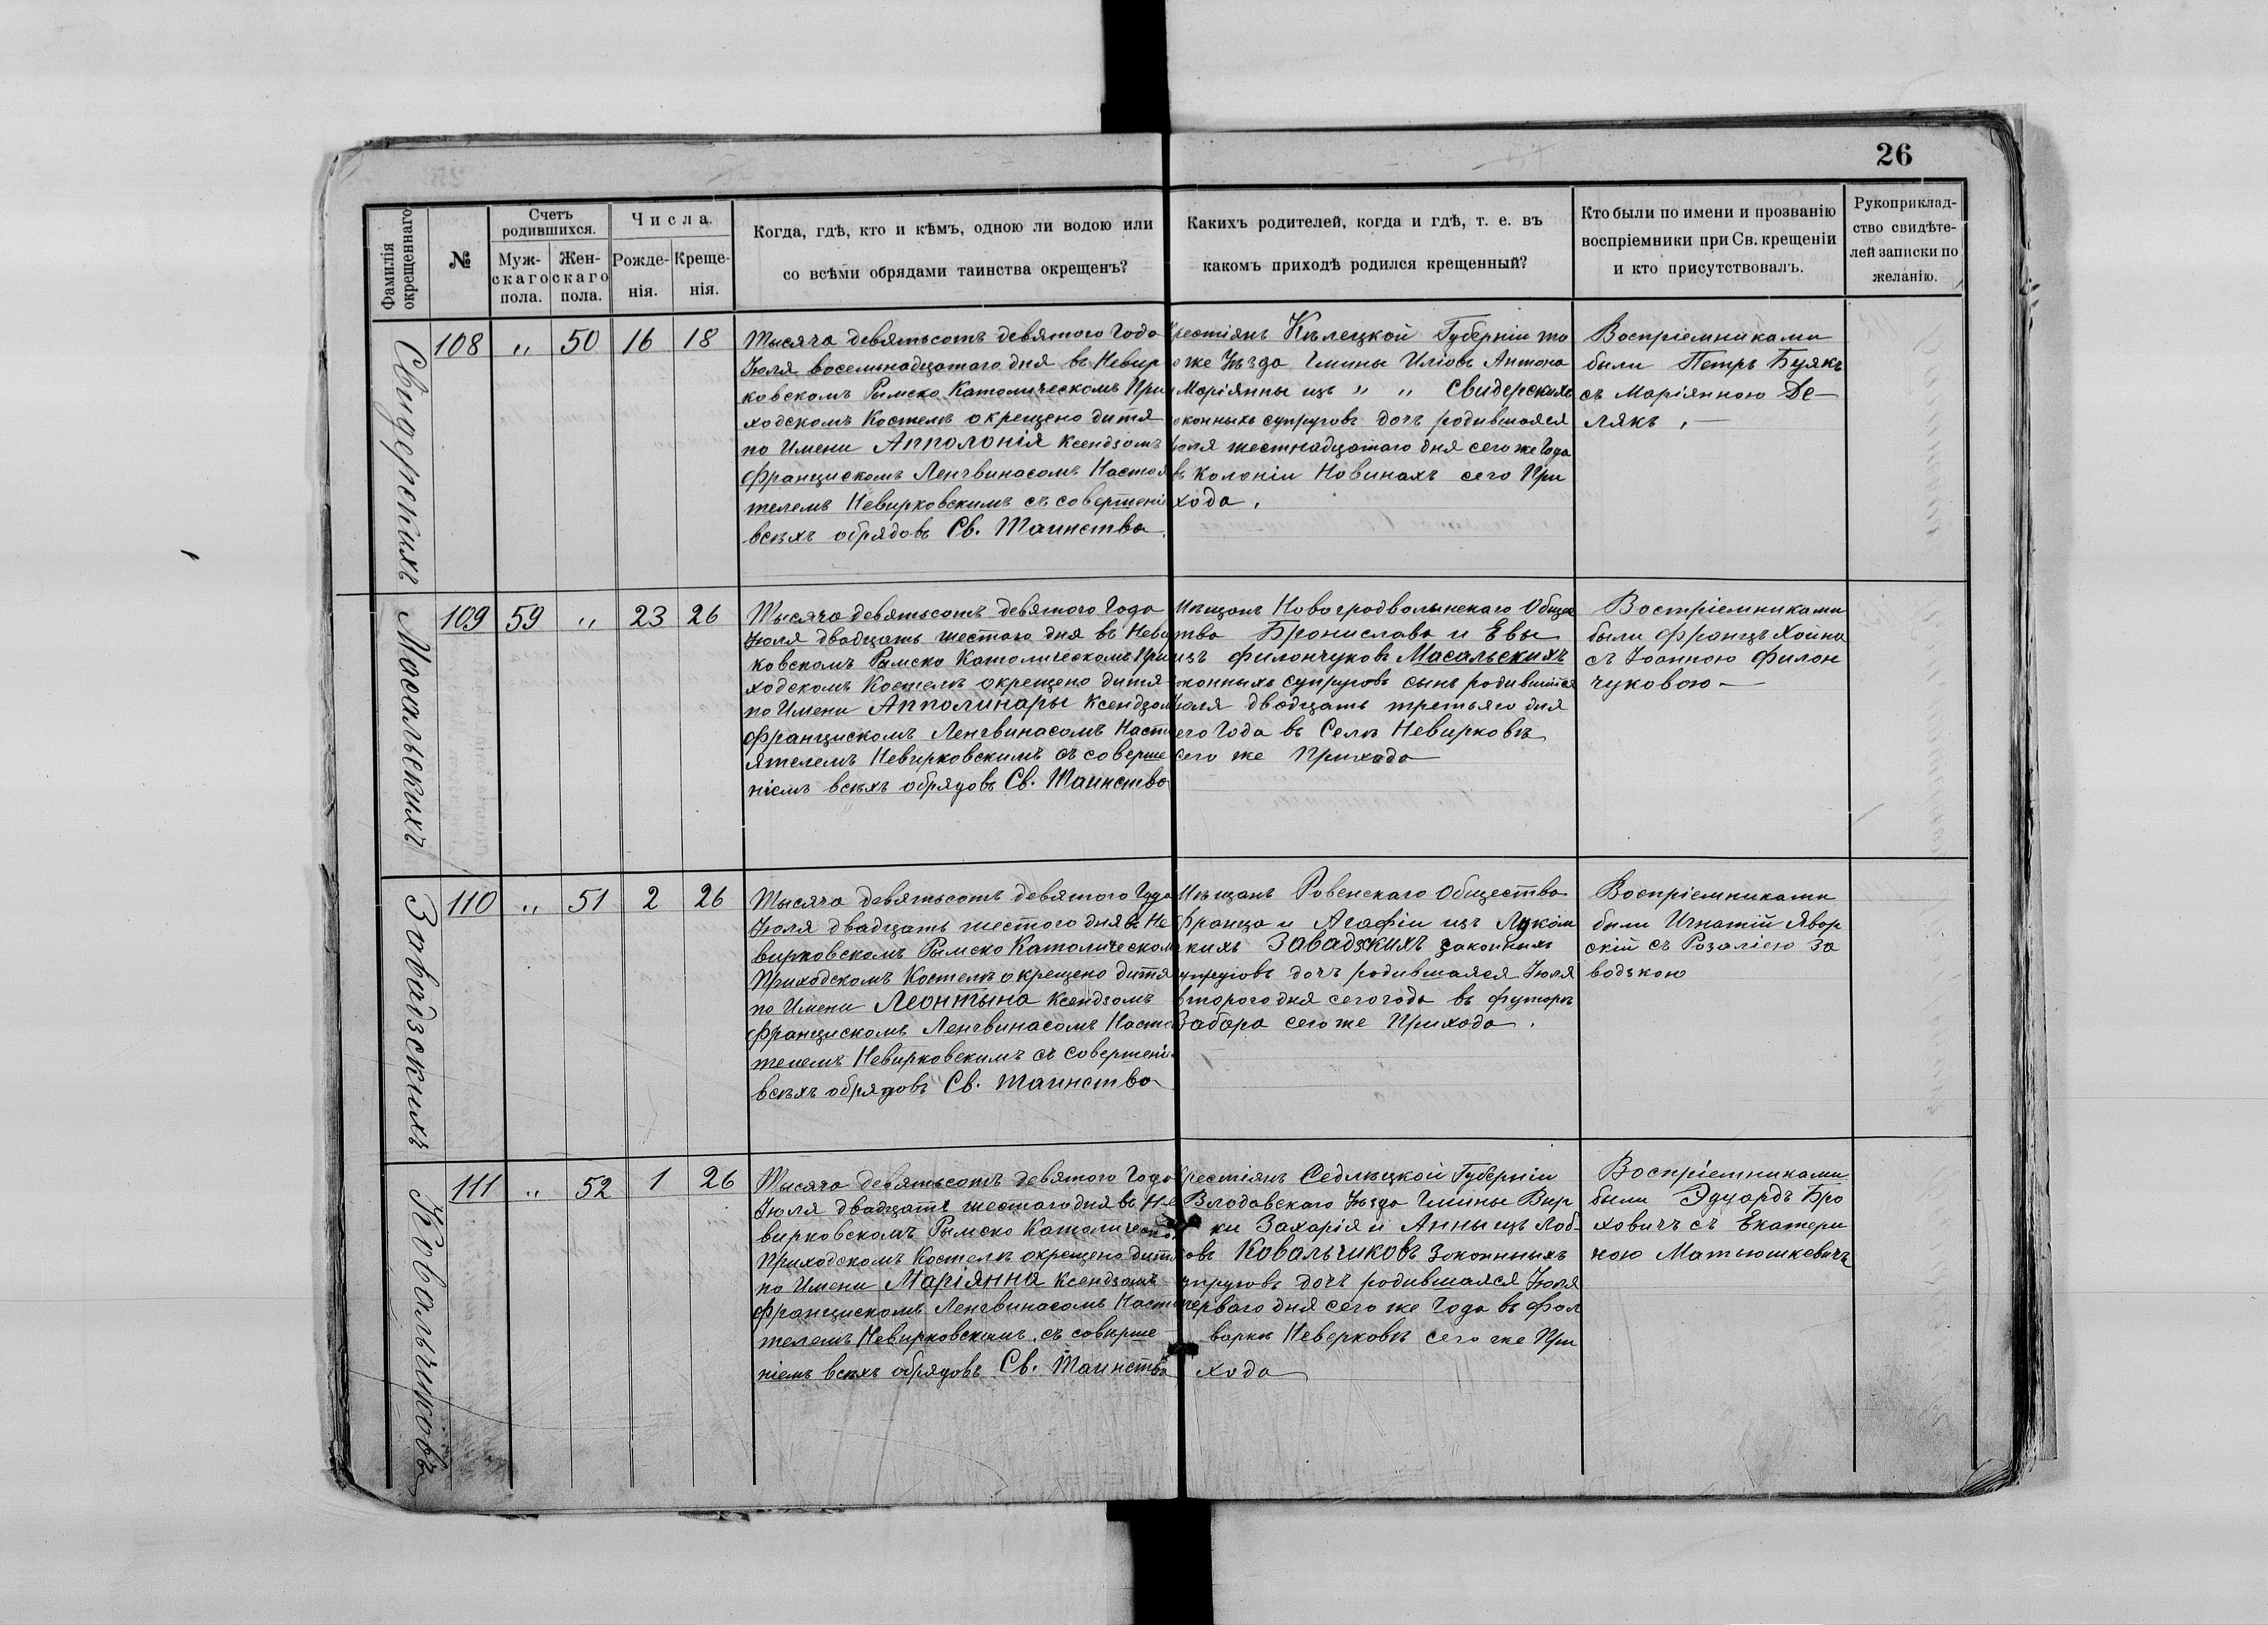 26
Фамилія окрещеннаго
№
Счетъ родившихся.
Мужскаго пола.
Женскаго пола.
Числа.
Рожденія.
Крещенія.
Когда, гдѣ, кто и кѣмъ, одною ли водою или
со всѣми обрядами таинства окрещенъ?
Какихъ родителей, когда и гдѣ, т. е. въ
какомъ приходѣ родился крещенный?
Кто были по имени и прозванію
воспріемники при Св. крещеніи
и кто присутствовалъ.
Рукоприклад-
ство свидѣте-
лей записки по
желанію.
Свидерскихъ
108 " 50 16 18
Тысяча девятьсотъ девятого Года
Іюля восемнадцатаго дня въ Невир
ковскомъ Римско Католическомъ При
ходскомъ Костелѣ окрещено дитя
по Имени Апполонія Ксендзомъ
Францискомъ Ленгвинасомъ Настоя
телемъ Невирковскимъ съ совершені
всѣхъ обрядовъ Св. Таинства
рестіянъ Кѣлецкой Губерніи то
же Уѣзда Гмины Иліовъ Антона
Маріянны изъ " " Свидерскихъ
конныхъ супруговъ дочь родившаяся
юля шестнадцатаго дня сего же Года
въ Колоніи Новинахъ сего При
хода.
Воспріемниками
были Петръ Буякъ
съ Маріянною Де-
лякъ.
Масальскихъ
109 59 " 23 26
Тысяча девятьсотъ девятого Года
Іюля двадцать шестаго дня въ Неви
ковскомъ Римско Католическомъ При
ходскомъ Костелѣ окрещено дитя
по Имени Апполинары Ксендзом
Францискомъ Ленгвинасомъ Насто
ятелемъ Невирковскимъ съ соверше
ніемъ всѣхъ обрядовъ Св. Таинства
Мѣщанъ Новоградволынскаго Общес
тва Бронислава и Евы
изъ Филончуковъ Масальскихъ
конныхъ супруговъ сынъ родившійся
Іюля двадцать третьяго дня
его Года въ Селѣ Невирковѣ
сего же Прихода
Воспріемниками
были Францъ Хойна
съ Іоанною Филон
чуковою
Завадзскихъ
110 " 51 2 26
Тысяча девятьсотъ девятого Года
Іюля двадцать шестого дня въ Не
вирковскомъ Римско Католическом
Приходскомъ Костелѣ окрещено дитя
по Имени Леонтына Ксендзомъ
Францискомъ Ленгвинасомъ Насто
телемъ Невирковскимъ съ совершені
всѣхъ обрядовъ Св. Таинства
Мѣщанъ Ровенскаго Общества
Франца и Агафіи изъ
кихъ Завадзкихъ законныхъ
упруговъ дочь родившаяся Іюля
второго дня сего года въ футорѣ
Забара сего же Прихода.
Воспріемниками
были Игнатій Явор
скій съ Розаліею За
водзкою
Ковальчиковъ
111 " 52 1 26
Тысяча девятьсотъ девятого Года
Іюля двадцать шестаго дня въ Не
вирковскомъ Римско Католическо
Приходскомъ Костелѣ окрещено дитя
по Имени Маріянна Ксендзомъ
Францискомъ Ленгвинасомъ Насто
телемъ Невирковскимъ съ соверше
ніемъ всѣхъ обрядовъ Св. Таинства
рестіянъ Седлѣцкой Губерніи
Влодавскаго Уѣзда Гмины Вир
ки Захарія и Анны изъ Лоб
овъ Ковальчиковъ законныхъ
упруговъ дочь родившаяся Іюля
перваго дня сего же Года въ Фол
варкѣ Неверковѣ сего же При
хода
Воспріемниками
были Эдуардъ Бро
ховичъ съ Екатери
ною Матьюшкевичъ